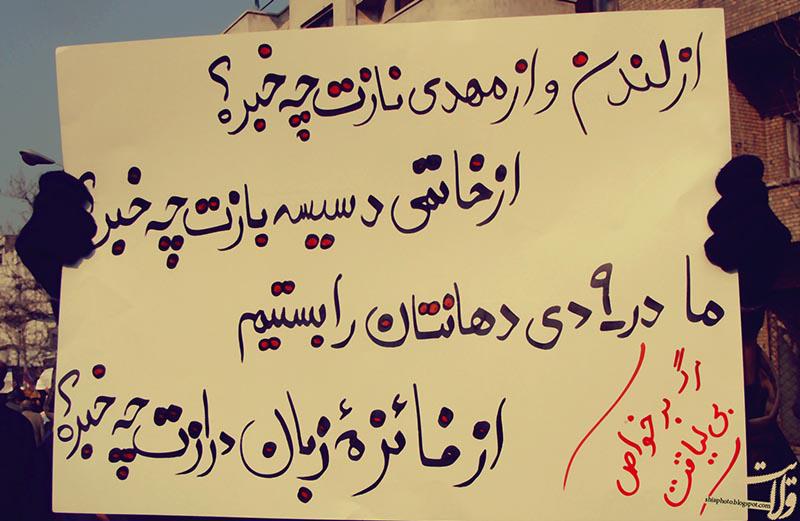 از لندن و از مهدی نازت چه خبر؟
از خاتمی دسیسه بازت چه خبر؟
ما در ۹ دی دهانتان را بستیم
از فائزهٔ زبان درازت چه خبر؟
مرگ بر خواص
بی لیاقت
shiaphoto.blogspot.com